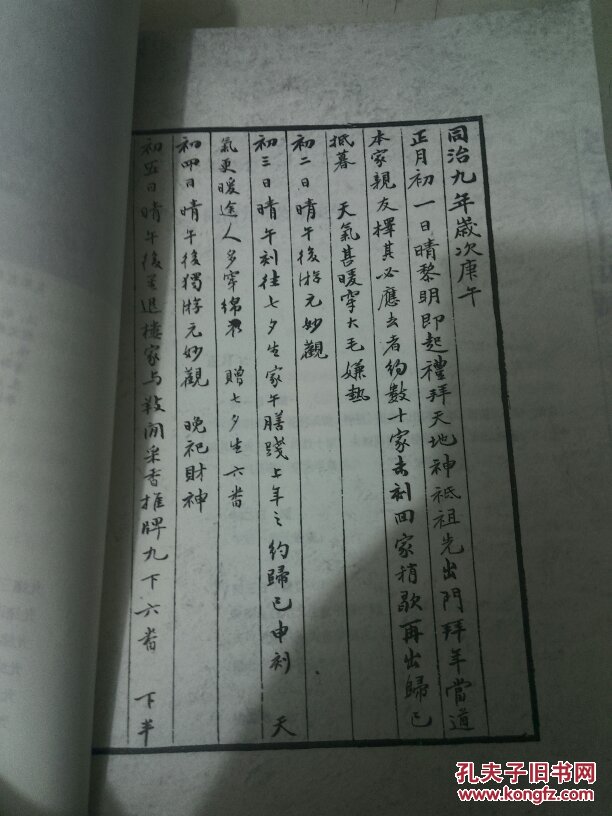 同治九年歲次庚午
正月初一日晴黎明即起禮拜天地神祗祖先出門拜年當道
本家親友擇其必應去者約數十家去刻回家稍歇再出歸已
抵暮 天氣甚暖穿大毛嫌熱
初二日晴午後游元妙觀
初三日晴午刻往七夕生家午膳踐上年之約歸已申刻 天
氣更暖途人多穿綿衣 贈七夕生六番
初四日晴午後獨游元妙觀 晚祀財神
初五日晴午後至退樓家与敍閒采香推牌九下六番 下半
孔夫子旧书网
www.kongfz.com